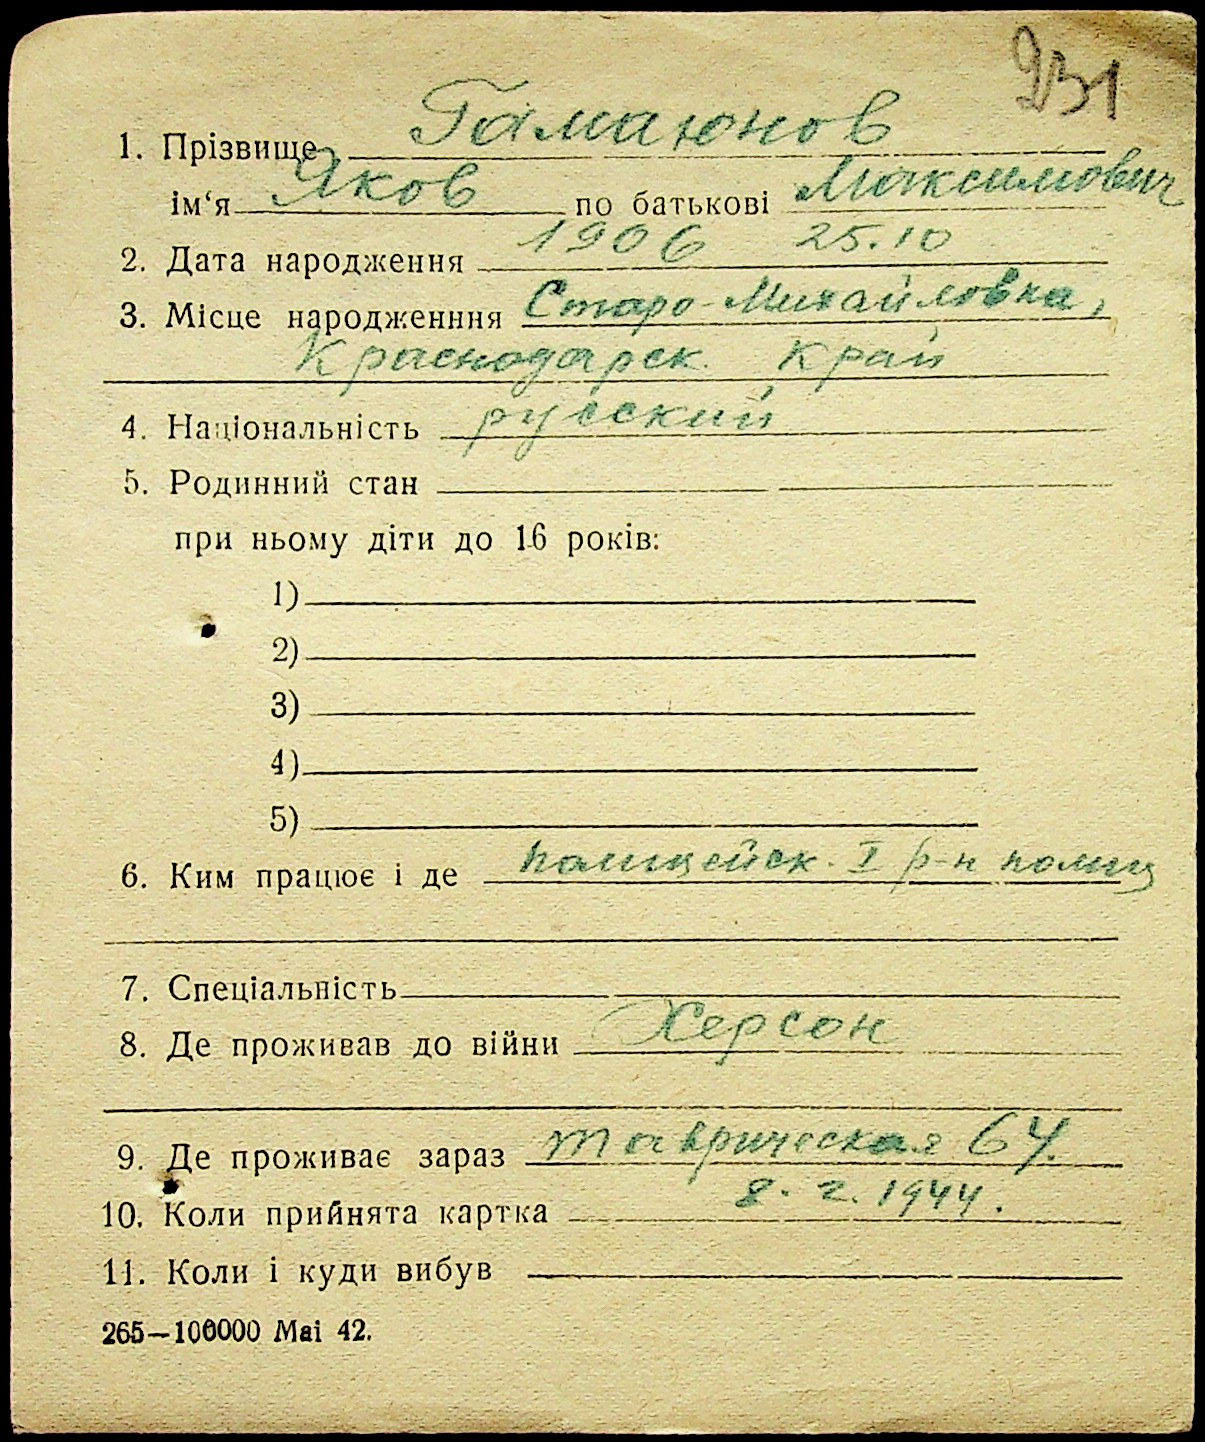 231
1. Прізвище Гамаюнов
ім‘я Яков по батькові Максимович
2. Дата народження 1906 25.10
3. Місце народженння Старо-Михайловка,
Краснодарск. Край
4. Національність русский
5. Родинний стан
при ньому діти до 16 років:
1)
2)
3)
4)
5)
6. Ким працює і де полицейск. I р-н полиц
7. Спеціальність
8. Де проживав до війни Херсон
9. Де проживає зараз Таврическая 64.
10. Коли прийнята картка 8. 2. 1944.
11. Коли і куди вибув
265—100000 Mai 42.